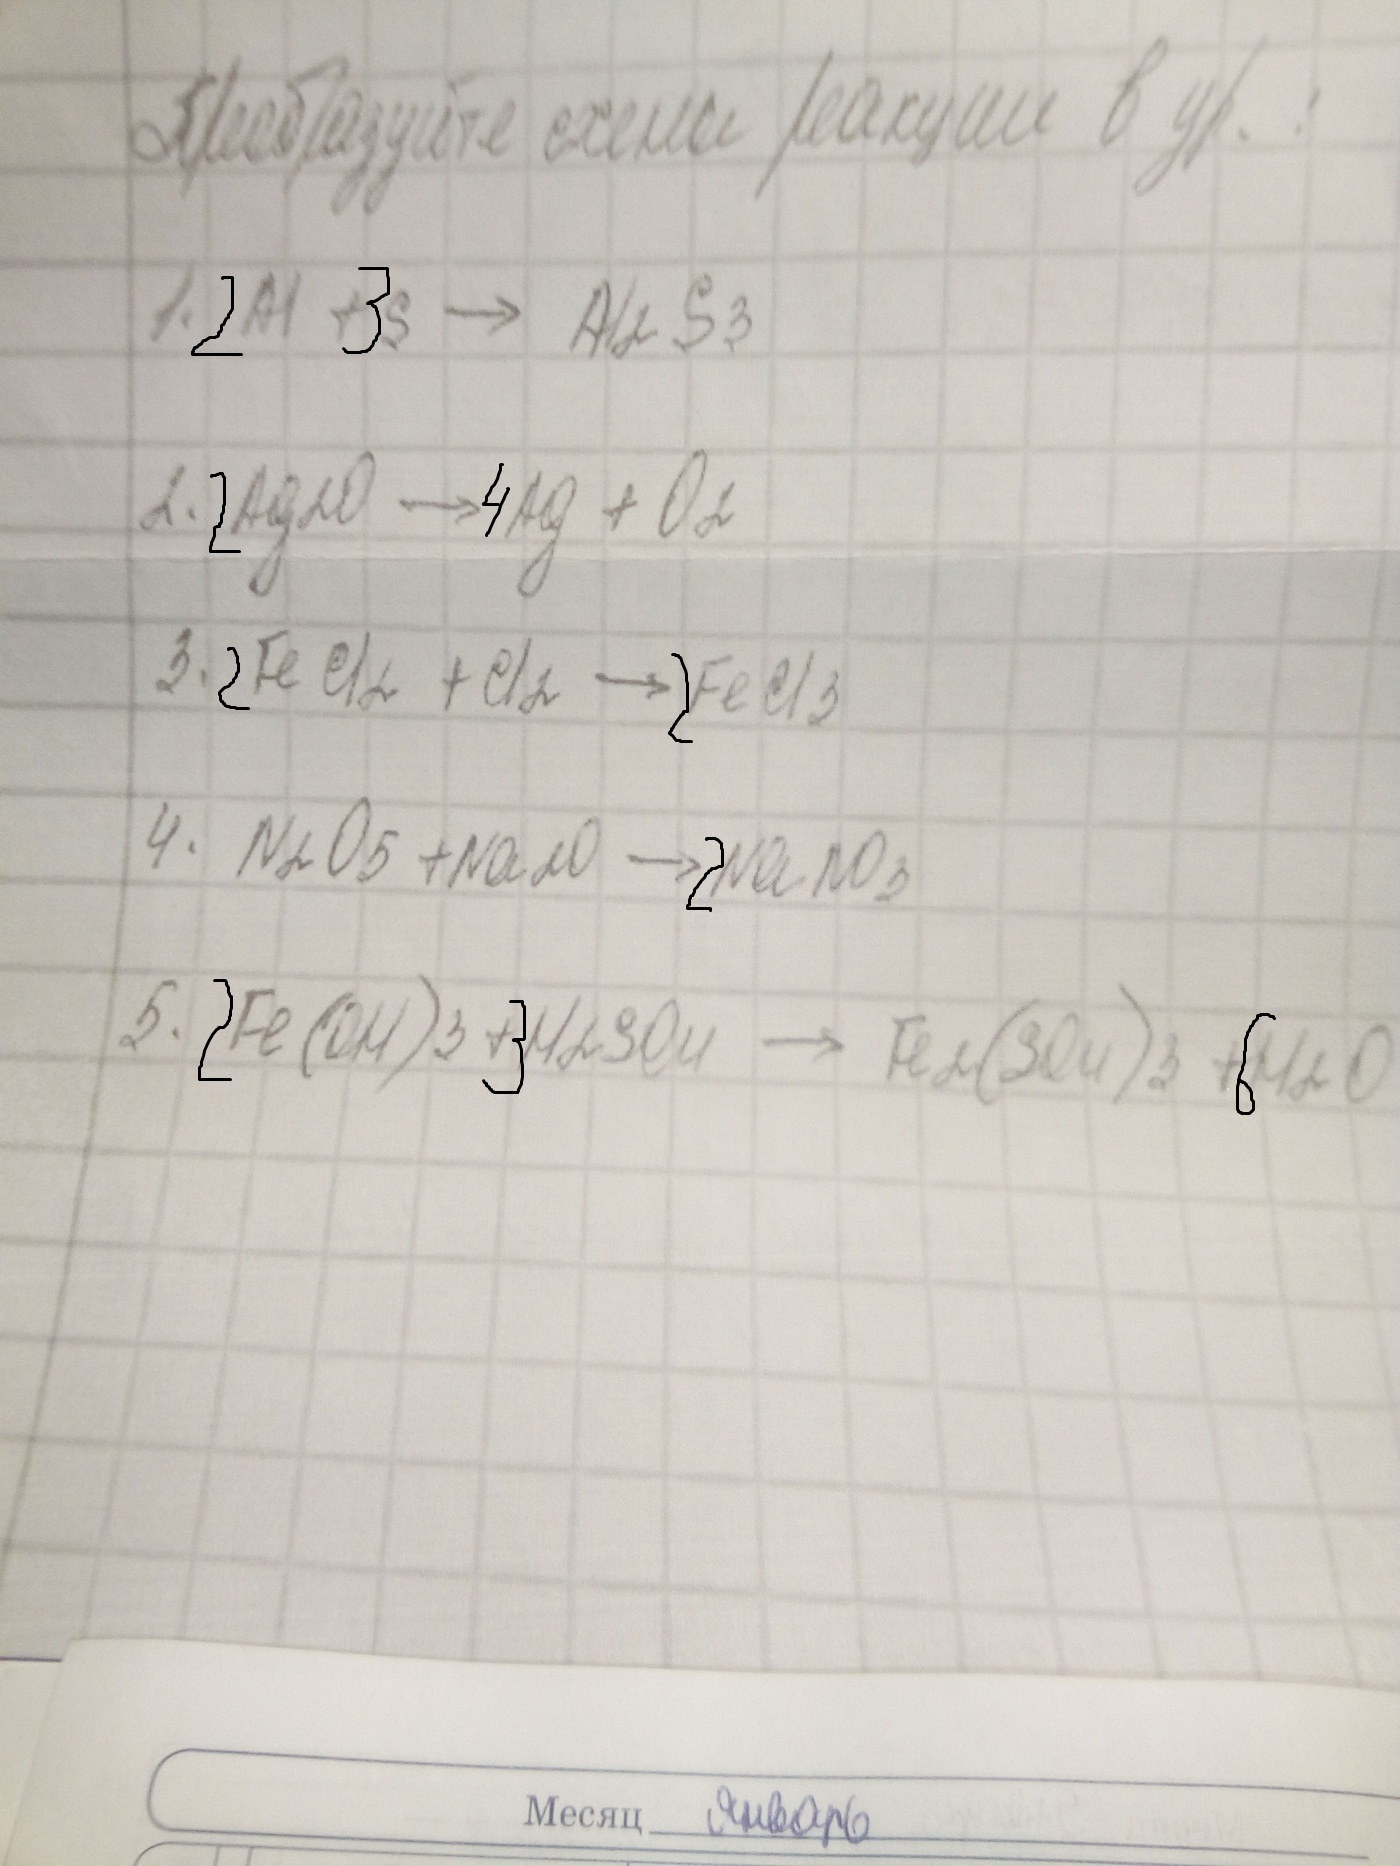 Преобразуйте схемы реакции в ур. :
1. 2Al + 3S → Al2S3
2. 2Ag2O → 4Ag + O2
3. 2FeCl2 + Cl2 → 2FeCl3
4. N2O5 + Na2O → 2NaNO3
5. 2Fe(OH)3 + 3H2SO4 → Fe2(SO4)3 + 6H2O
Месяц Январь